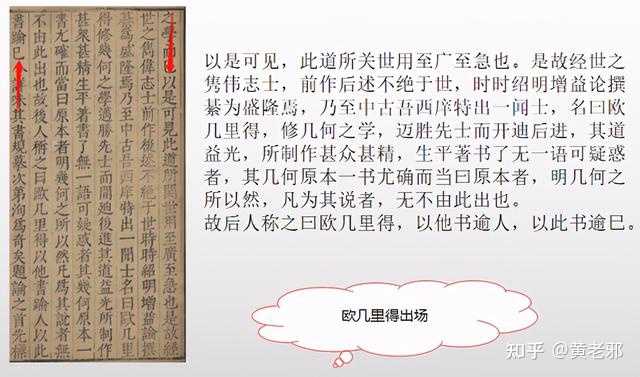 之學而已以是可見此道所關世用至廣至急也是故經
世之雋偉志士前作後述不絕于世時時紹明增益論撰
綦爲盛隆焉乃至中古吾西庠特出一聞士名曰歐几里
得修幾何之學邁勝先士而開廸後進其道益光所制作
甚衆甚精生平著書了無一語可疑惑者其幾何原本一
書尤確而當曰原本者明幾何之所以然凡爲其說者無
不由此出也故後人稱之曰歐几里得以他書踰人以此
書踰巳味其書規摹次第洵爲奇矣題論之首先標
以是可见，此道所关世用至广至急也。是故经世之
隽伟志士，前作后述不绝于世，时时绍明增益论撰
綦为盛隆焉，乃至中古吾西庠特出一闻士，名曰欧
几里得，修几何之学，迈胜先士而开迪后进，其道
益光，所制作甚众甚精，生平著书了无一语可疑惑
者，其几何原本一书尤确而当曰原本者，明几何之
所以然，凡为其说者，无不由此出也。
故后人称之曰欧几里得，以他书逾人，以此书逾巳。
欧几里得出场
知乎 @黄老邪